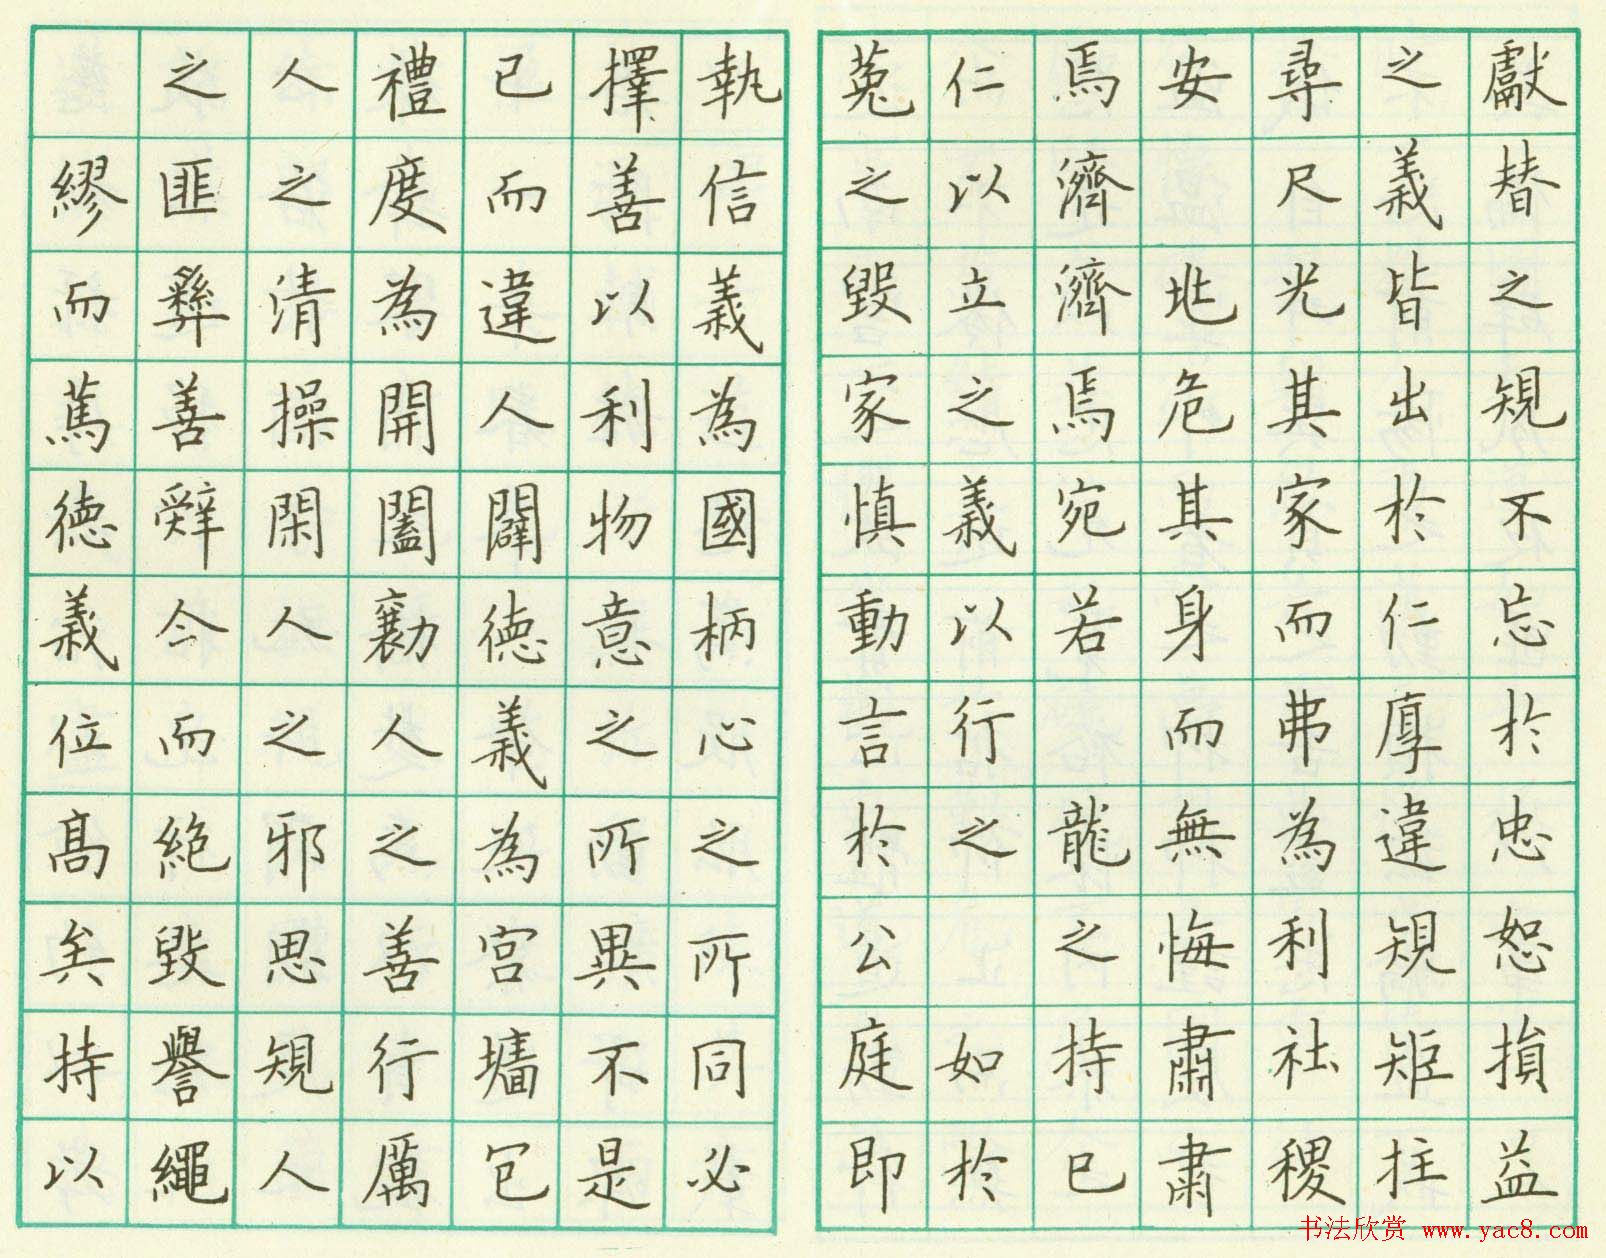 獻替之規不忘於忠恕損益
之義皆出於仁厚違規矩拄
尋尺光其家而弗為利社稷
安 危其身而無悔肅肅
焉濟濟焉宛若 龍之持已
仁以立之義以行之如於
菟之毀家慎動言於公庭即
執信義為國柄心之所同必
擇善以利物意之所異不是
已而違人闢德義為宮墻包
禮度為開闔勷人之善行厲
人之清操閑人之邪思規人
之匪彝善辭令而絕毀譽繩
繆而篤德義位高矣持以
书法欣赏 www.yac8.com